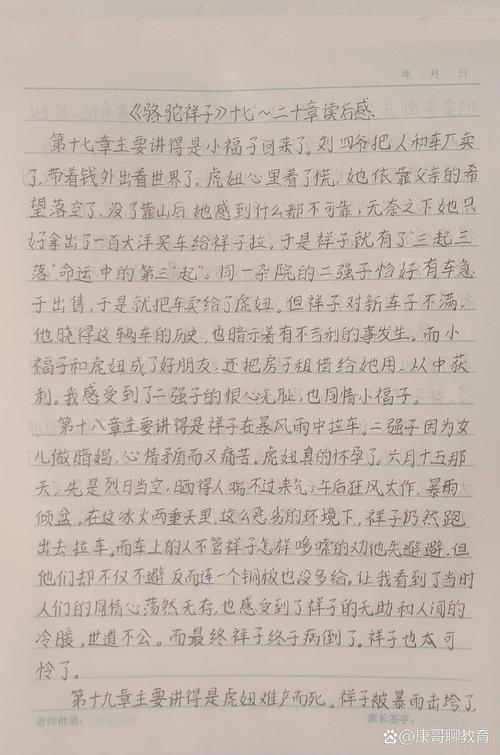 年 月 日
《骆驼祥子》十七~二十章读后感
第十七章主要讲得是小福子回来了。刘四爷把人和车厂卖
了,带着钱外出看世界了。虎妞心里着了慌,她依靠父亲的希
望落空了,没了靠山后她感到什么都不可靠,无奈之下她只
好拿出了一百大洋买车给祥子拉,于是祥子就有了“三起三
落”命运中的第三“起”。同一杂院的二强子恰好有车急
于出售,于是就把车卖给了虎妞。但祥子对新车子不满,
他晓得这辆车的历史,也暗示着有不吉利的事发生。而小
福子和虎妞成了好朋友,还把房子租借给她用,从中获
利。我感受到了二强子的狠心无耻,也同情小福子。
第十八章主要讲得是祥子在暴风雨中拉车。二强子因为女
儿做暗娼,心情矛盾而又痛苦。虎妞真的怀孕了,六月十五那
天,先是烈日当空,晒得人喘不过来气;午后狂风大作,暴雨
倾盆。在这冰火两重天里,这么恶劣的环境下,祥子仍然跑
出去拉车。而车上的人不管祥子怎样哆嗦的劝他先避避,但
他们却不仅不避反而连一个铜板也没多给,让我看到了当时
人们的同情心荡然无存,也感受到了祥子的无助和人间的
冷暖,世道不公。而最终祥子终于病倒了。祥子也太可
怜了。
第十九章主要讲得是虎妞难产而死。祥子被暴雨击垮了,
老师批语: 家长签字:
@康哥聊教育